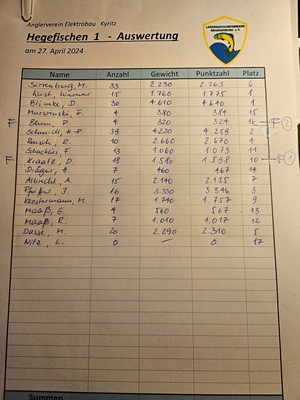 Anglerverein Elektrobau Kyritz
LANDESANGLERVERBAND
BRANDENBURG e.V.
Hegefischen 1 - Auswertung
am 27. April 2024
Name Anzahl Gewicht Punktzahl Platz
M. 33 2.230 2.263 6
15 1.760 1.775
D. 30 4.610 4.640 1
F. 4 380 384 15
F P. 4 320 324 16 F 2
H.-P. 39 4.220 4.259 2
R. 10 2.660 2.670 4
F. 13 1.060 1.073 11
F Kraatz, D. 18 1.580 1.598 10 F 1
Dräger, H. 7 460 467 14
Albrecht, A. 15 2.140 2.155 7
J. 16 3.330 3.346 3
M. 17 1.740 1.757 9
Maaß, G. 4 560 13
Maaß, R. 7 1.010 1.017 12
Dasse, M. 20 2.290 2.310 5
Nitz, L. 0 — 0 17
Summen